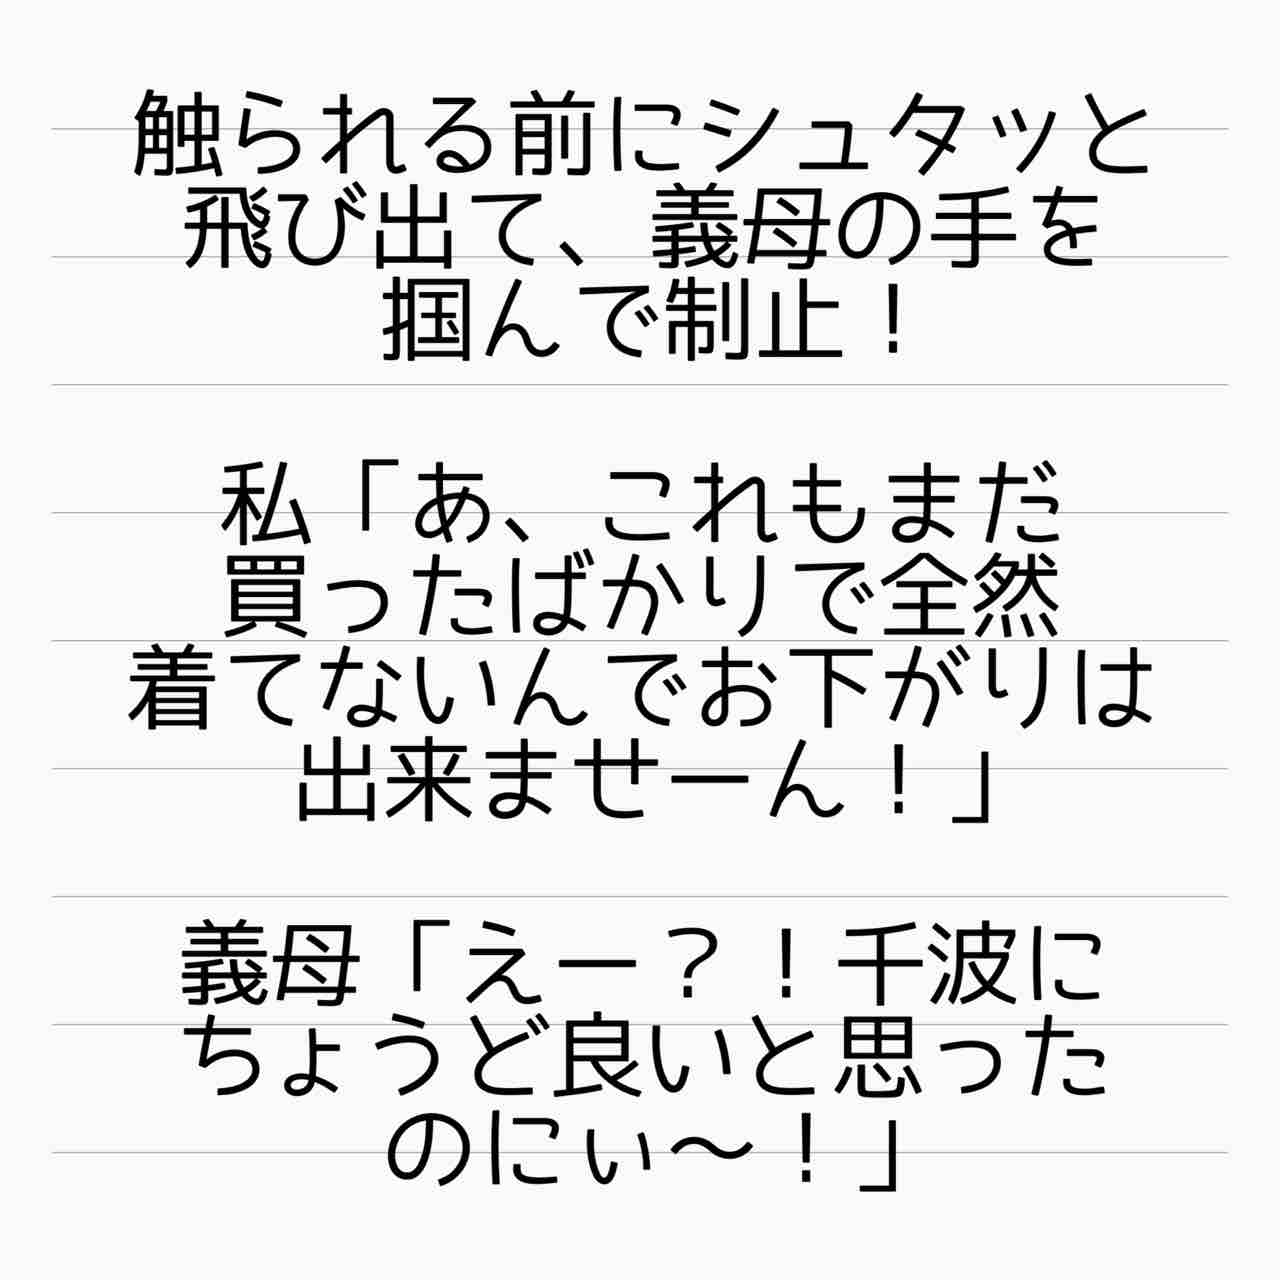 触られる前にシュタッと
飛び出て、義母の手を
掴んで制止！
私「あ、これもまだ
買ったばかりで全然
着てないんでお下がりは
出来ませーん！」
義母「えー？！千波に
ちょうど良いと思った
のにぃ〜！」